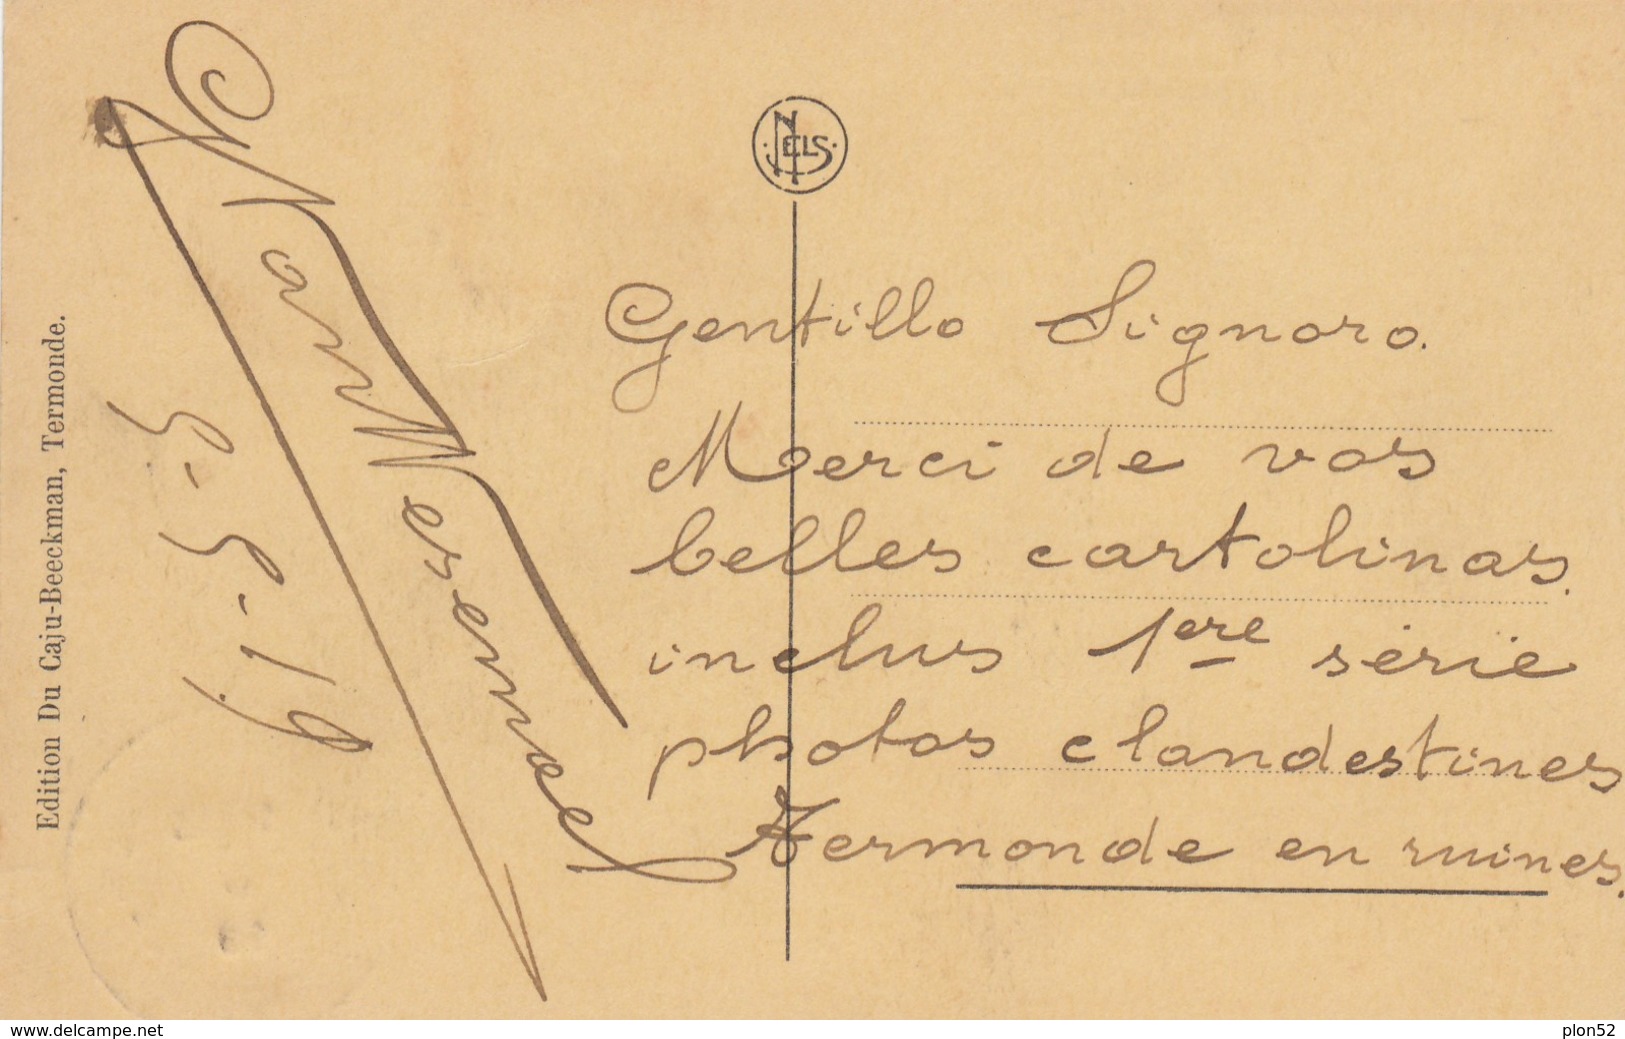 NELS
Gentillo Signoro.
Merci de vos
belles cartolinas.
inclus 1ere série
photos clandestines
Termonde en ruines.
5-5-19.
Edition Du Caju-Beeckman, Termonde.
www.delcampe.net
plon52